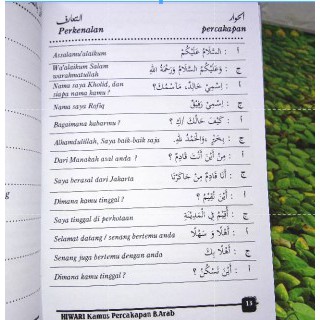 التعارف الحوار
Perkenalan percakapan
Assalamu'alaikum أ : السَّلَامُ عَلَيْكُمْ
Wa'alaikum Salam warahmatullah ج : وَعَلَيْكُمُ السَّلَامُ وَرَحْمَةُ اللهِ
Nama saya Kholid, dan siapa nama kamu ? أ : اِسْمِيْ خَالِدٌ، مَاسْمُكَ؟
Nama saya Rofiq ج : اِسْمِيْ رَفِيْقٌ
Bagaimana kabarmu ? أ : كَيْفَ حَالُكَ ؟
Alhamdulillah, Saya baik-baik saja ج : بِخَيْرٍ، وَالْحَمْدُ لِلّٰهِ.
Dari Manakah asal anda ? أ : مِنْ أَيْنَ أَنْتَ قَادِمٌ ؟
Saya berasal dari Jakarta ج : أَنَا قَادِمٌ مِنْ جَاكَرْتَا
Dimana kamu tinggal ? أ : أَيْنَ تُقِيْمُ ؟
Saya tinggal di perkotaan ج : أُقِيْمُ فِي الْمَدِيْنَةِ
Selamat datang / senang bertemu anda أ : أَهْلًا وَ سَهْلًا
Senang juga bertemu dengan anda ج : أَهْلًا بِكَ
Dimana kamu tinggal ? أ : أَيْنَ تَسْكُنُ ؟
13
HIWARI Kamus Percakapan B.Arab